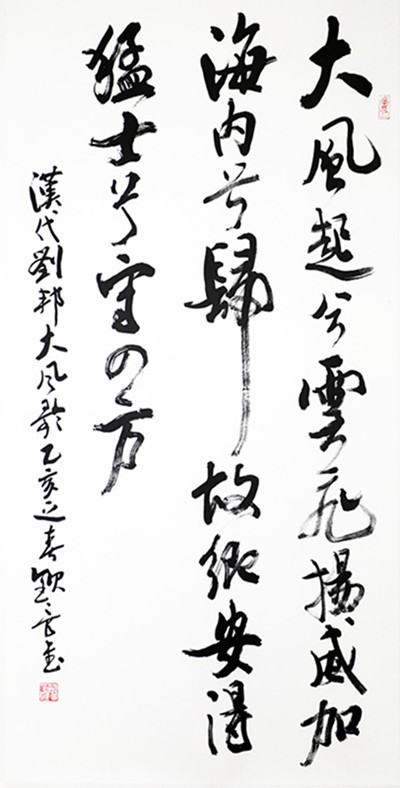 大風起兮雲飛揚威加
海内兮歸故鄉安得
猛士兮守四方
漢代劉邦大風歌乙亥春